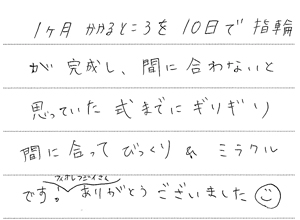 1ヶ月かかるところを10日で指輪
が完成し、間に合わないと
思っていた式までにギリギリ
間に合ってびっくり& ミラクル
です。ありがとうございました